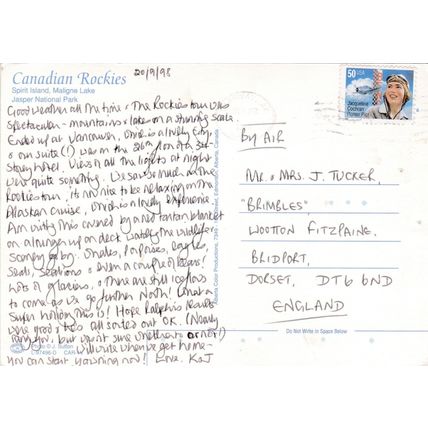 Canadian Rockies
20/9/98
Spirit Island, Maligne Lake
Jasper National Park
Good weather all the time. The Rockies tour was
spectacular - mountains & lakes on a stunning scale.
Ended up at Vancouver, which is a lovely city,
& our suite (!) was on the 26th floor of a 34
storey hotel. Views of all the lights at night
were quite something. We saw so much on the
Rockies tour, it's now nice to be relaxing on the
Alaskan cruise, which is a lovely experience.
Am writing this covered by a red tartan blanket
on a lounger up on deck, watching the wildlife &
scenery go by. Whales, Porpoises, eagles,
Seals, Sealions & even a couple of bears!
Lots of glaciers, & there are still icebergs
to come as we go further North! What a
super holiday this is! Hope Ralph's results
were good & it's all sorted out OK. (Nearly
rang you, but wasn't sure whether to or not!)
Will write when we get home -
you can start yawning now! Love K & J
Photo © J. Sutton
50 USA
Jacqueline
Cochran
Pioneer Pilot
By AIR
Mr. & Mrs. J. TUCKER,
"BRIMBLES"
WOOTTON FITZPAINE,
BRIDPORT,
DORSET, DT6 6ND
ENGLAND
Do Not Write In Space Below